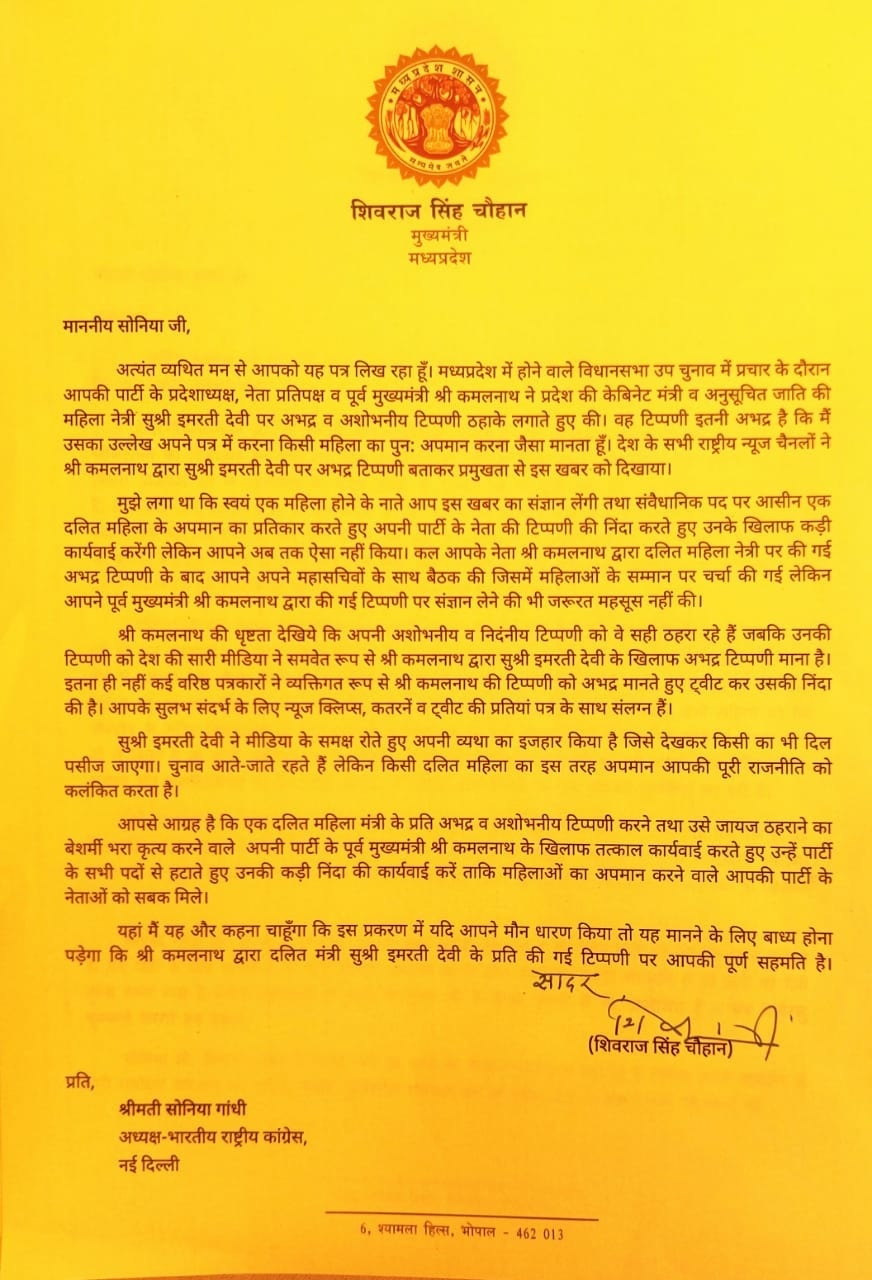 मध्यप्रदेश शासन
सत्यमेव जयते
शिवराज सिंह चौहान
मुख्यमंत्री
मध्यप्रदेश
माननीय सोनिया जी,
अत्यंत व्यथित मन से आपको यह पत्र लिख रहा हूँ। मध्यप्रदेश में होने वाले विधानसभा उप चुनाव में प्रचार के दौरान
आपकी पार्टी के प्रदेशाध्यक्ष, नेता प्रतिपक्ष व पूर्व मुख्यमंत्री श्री कमलनाथ ने प्रदेश की केबिनेट मंत्री व अनुसूचित जाति की
महिला नेत्री सुश्री इमरती देवी पर अभद्र व अशोभनीय टिप्पणी ठहाके लगाते हुए की। वह टिप्पणी इतनी अभद्र है कि मैं
उसका उल्लेख अपने पत्र में करना किसी महिला का पुन: अपमान करना जैसा मानता हूँ। देश के सभी राष्ट्रीय न्यूज चैनलों ने
श्री कमलनाथ द्वारा सुश्री इमरती देवी पर अभद्र टिप्पणी बताकर प्रमुखता से इस खबर को दिखाया।
मुझे लगा था कि स्वयं एक महिला होने के नाते आप इस खबर का संज्ञान लेंगी तथा संवैधानिक पद पर आसीन एक
दलित महिला के अपमान का प्रतिकार करते हुए अपनी पार्टी के नेता की टिप्पणी की निंदा करते हुए उनके खिलाफ कड़ी
कार्यवाई करेंगी लेकिन आपने अब तक ऐसा नहीं किया। कल आपके नेता श्री कमलनाथ द्वारा दलित महिला नेत्री पर की गई
अभद्र टिप्पणी के बाद आपने अपने महासचिवों के साथ बैठक की जिसमें महिलाओं के सम्मान पर चर्चा की गई लेकिन
आपने पूर्व मुख्यमंत्री श्री कमलनाथ द्वारा की गई टिप्पणी पर संज्ञान लेने की भी जरूरत महसूस नहीं की।
श्री कमलनाथ की धृष्टता देखिये कि अपनी अशोभनीय व निदंनीय टिप्पणी को वे सही ठहरा रहे हैं जबकि उनकी
टिप्पणी को देश की सारी मीडिया ने समवेत रूप से श्री कमलनाथ द्वारा सुश्री इमरती देवी के खिलाफ अभद्र टिप्पणी माना है।
इतना ही नहीं कई वरिष्ठ पत्रकारों ने व्यक्तिगत रूप से श्री कमलनाथ की टिप्पणी को अभद्र मानते हुए ट्वीट कर उसकी निंदा
की है। आपके सुलभ संदर्भ के लिए न्यूज क्लिप्स, कतरनें व ट्वीट की प्रतियां पत्र के साथ संलग्न हैं।
सुश्री इमरती देवी ने मीडिया के समक्ष रोते हुए अपनी व्यथा का इजहार किया है जिसे देखकर किसी का भी दिल
पसीज जाएगा। चुनाव आते-जाते रहते हैं लेकिन किसी दलित महिला का इस तरह अपमान आपकी पूरी राजनीति को
कलंकित करता है।
आपसे आग्रह है कि एक दलित महिला मंत्री के प्रति अभद्र व अशोभनीय टिप्पणी करने तथा उसे जायज ठहराने का
बेशर्मी भरा कृत्य करने वाले अपनी पार्टी के पूर्व मुख्यमंत्री श्री कमलनाथ के खिलाफ तत्काल कार्यवाई करते हुए उन्हें पार्टी
के सभी पदों से हटाते हुए उनकी कड़ी निंदा की कार्यवाई करें ताकि महिलाओं का अपमान करने वाले आपकी पार्टी के
नेताओं को सबक मिले।
यहां मैं यह और कहना चाहूँगा कि इस प्रकरण में यदि आपने मौन धारण किया तो यह मानने के लिए बाध्य होना
पड़ेगा कि श्री कमलनाथ द्वारा दलित मंत्री सुश्री इमरती देवी के प्रति की गई टिप्पणी पर आपकी पूर्ण सहमति है।
सादर
(शिवराज सिंह चौहान)
प्रति,
श्रीमती सोनिया गांधी
अध्यक्ष-भारतीय राष्ट्रीय कांग्रेस,
नई दिल्ली
6, श्यामला हिल्स, भोपाल - 462 013